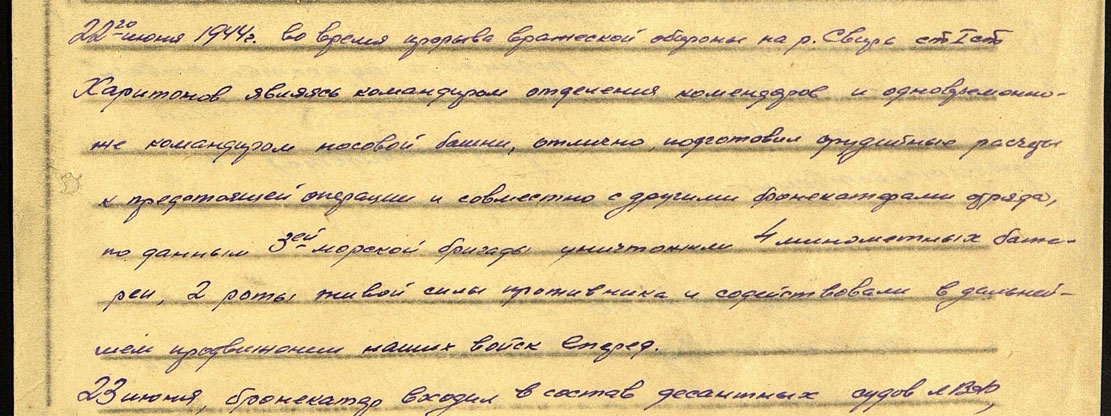 22го июня 1944г. во время прорыва вражеской обороны на р. Свирь ст I ст
Харитонов являясь командиром отделения комендоров и одновремонно-
же командиром носовой башни, отлично подготовил орудийные расчеты
к предстоящей операции и совместно с другими бронекатерами отряда,
по данным 3ей морской бригады уничтожили 4 минометных бата-
реи, 2 роты живой силы противника и содействовали в дальней-
шем продвижении наших войск вперед.
23 июня, бронекатер входил в состав десантных судов ЛВФ,